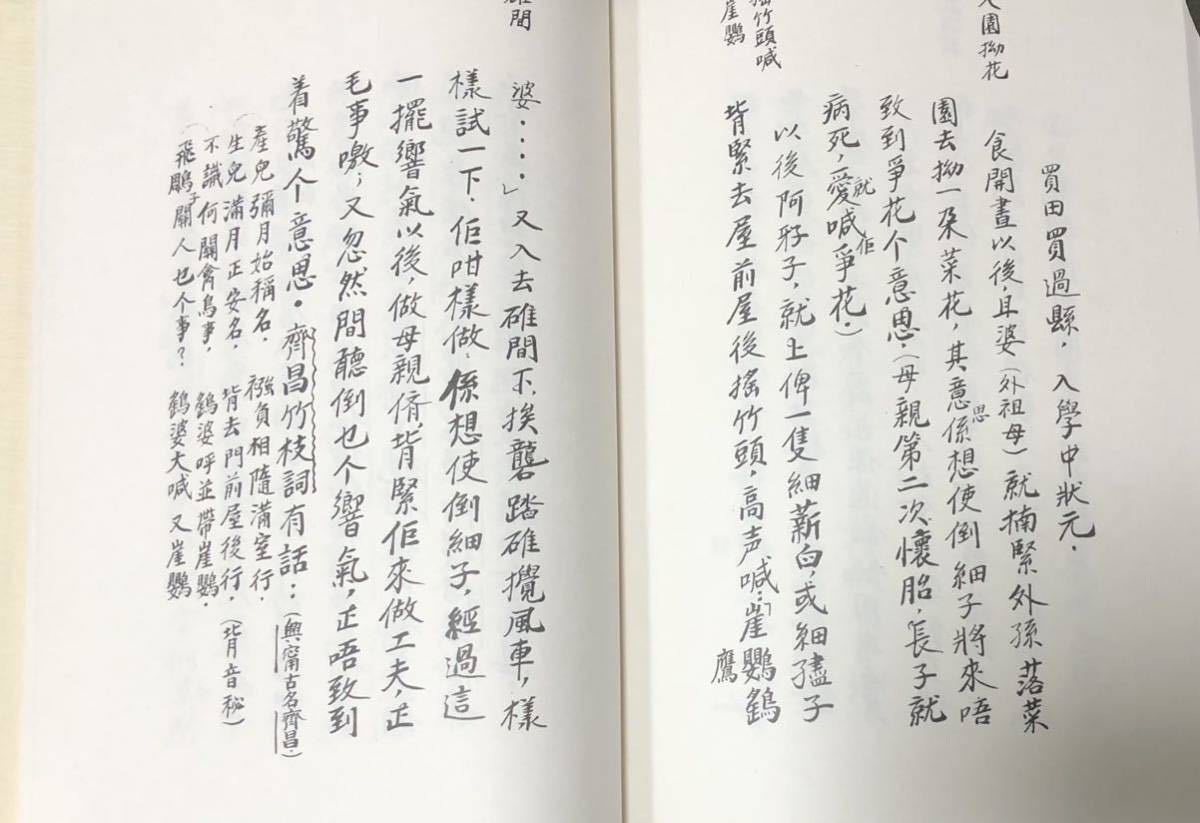 入園拗花
搖竹頭喊
崖鸚
買田買過縣，入學中狀元．
食開晝以後，且婆（外祖母）就揇緊外孫落菜
園去拗一朶菜花，其意思係想使倒細子將來唔
致到爭花个意思．（母親第二次懷胎，長子就
病死，就愛喊佢爭花．）
以後阿孲子，就上俾一隻細薪臼，或細孻子
揹緊去屋前屋後搖竹頭，高声喊：「崖鸚鷂
鷹
碓間
婆．．．．」又入去碓間下，挨礱踏碓攪風車，樣
樣試一下．佢咁樣做．係想使倒細子，經過這
一擺響氣以後，做母親偹，揹緊佢來做工夫，正
毛事嗷；又忽然間聽倒乜个響氣，正唔致到
着驚个意思．齊昌竹枝詞有話：（興甯古名齊昌．）
（產兒彌月始稱名．襁負相隨滿室行．
（生兒滿月正安名．揹去門前屋後行．（揹音秘）
（不識何關禽鳥事，鷂婆呼並帶崖鸚．
（飛鵰子關人乜个事？鷂婆大喊又崖鸚